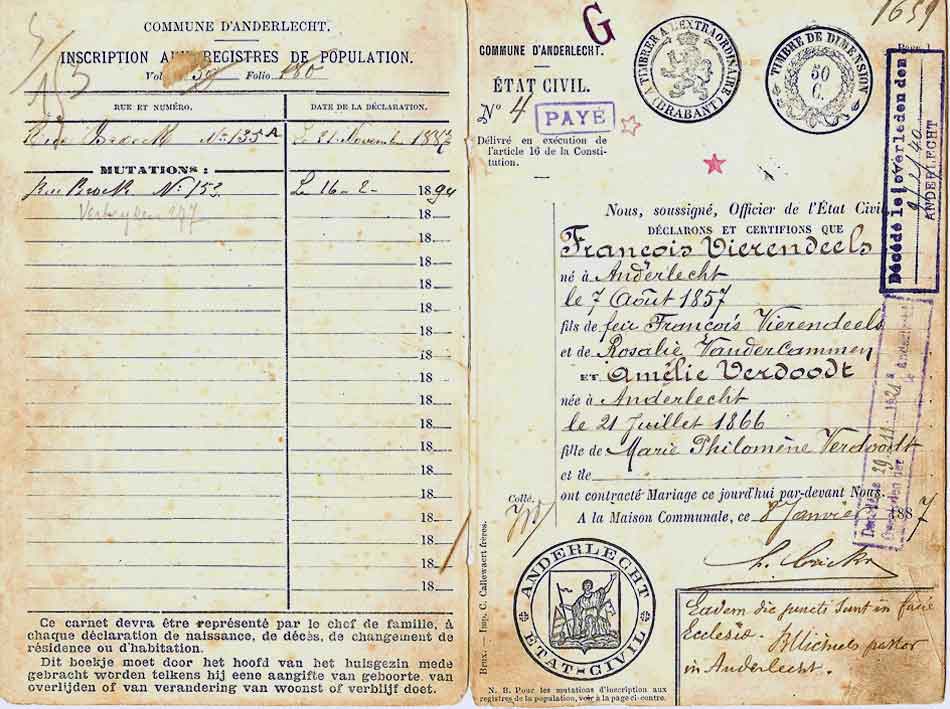 COMMUNE D'ANDERLECHT.
INSCRIPTION AUX REGISTRES DE POPULATION.
Vol. 39 Folio 180
RUE ET NUMÉRO.
DATE DE LA DÉCLARATION.
Rue Broeck No 135A Le 21 Novembre 1887
MUTATIONS :
Rue Broeck No 153 Le 16-2- 1894
18
18
18
18
18
18
18
18
18
18
18
18
18
18
18
18
18
Ce carnet devra être représenté par le chef de famille, à
chaque déclaration de naissance, de décès, de changement de
résidence ou d'habitation.
Dit boekje moet door het hoofd van het huisgezin mede
gebracht worden telkens hij eene aangifte van geboorte, van
overlijden of van verandering van woonst of verblijf doet.
Brux. — Imp. C. Callewaert frères.
G
1659
COMMUNE D'ANDERLECHT.
ÉTAT CIVIL.
No 4
PAYÉ
Délivré en exécution de
l'article 16 de la Consti-
tution.
A TIMBRER A L'EXTRAORDINAIRE
(BRABANT)
TIMBRE DE DIMENSION
50
C.
Décédé le|overleden den
9/2/40
ANDERLECHT
Nous, soussigné, Officier de l'État Civil
DÉCLARONS ET CERTIFIONS QUE
François Vierendeels
né à Anderlecht
le 7 Août 1857
fils de feu François Vierendeels
et de Rosalie Vandercammen
ET Amélie Verdoodt
née à Anderlecht
le 21 Juillet 1866
fille de Marie Philomène Verdoodt
et de
ont contracté Mariage ce jourd'hui par-devant Nous.
A la Maison Communale, ce 8 Janvier 1887
Collé.
ANDERLECHT
ETAT-CIVIL
Eadem die juncti sunt in facie
Ecclesiæ. Michiels pastor
in Anderlecht.
N. B. Pour les mutations d'inscription aux
registres de la population, voir à la page ci-contre.